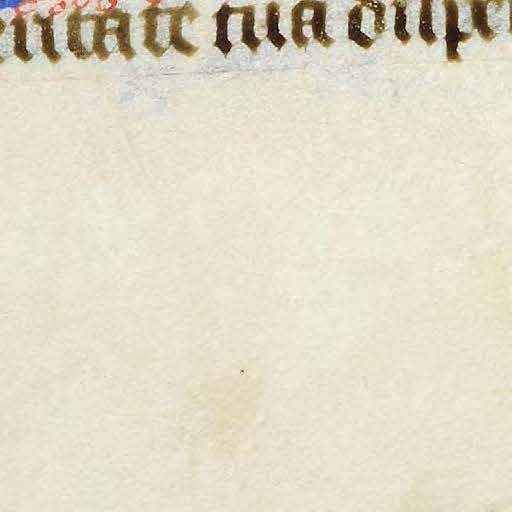 eritate tua disper